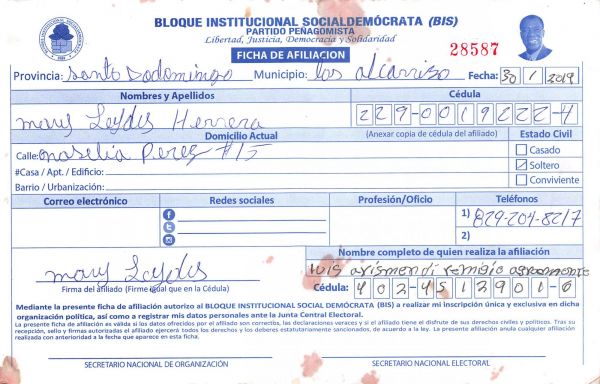 BLOQUE INSTITUCIONAL SOCIALDEMÓCRATA (BIS)
PARTIDO PEÑAGOMISTA
Libertad, Justicia, Democracia y Solidaridad
FICHA DE AFILIACION
28587
Provincia: Santo Sodomingo Municipio: los alcarrizo Fecha: 30 / 1 / 2019
Nombres y Apellidos Cédula
mary Leydis Herrera 229-0019222-4
Domicilio Actual (Anexar copia de cédula del afiliado) Estado Civil
Calle: Perez #15 Casado
#Casa / Apt. / Edificio: Soltero
Barrio / Urbanización: Conviviente
Correo electrónico Redes sociales Profesión/Oficio Teléfonos
1) 829-204-8217
2)
Nombre completo de quien realiza la afiliación
mary Leydis luis arismendi remigio
Firma del afiliado (Firme igual que en la Cédula) Cédula: 402-4512901-6
Mediante la presente ficha de afiliación autorizo al BLOQUE INSTITUCIONAL SOCIAL DEMÓCRATA (BIS) a realizar mi inscripción única y exclusiva en dicha
organización política, así como a registrar mis datos personales ante la Junta Central Electoral.
La presente ficha de afiliación es válida si los datos ofrecidos por el afiliado son correctos, las declaraciones veraces y si el afiliado tiene el disfrute de sus derechos civiles y políticos. Tras su
recepción, sello y firmas autorizadas el afiliado ejercerá todos los derechos y los deberes estatutariamente sancionados, de acuerdo a la ley. La presente afiliación anula cualquier afiliación
realizada con anterioridad a la fecha que aparece en esta ficha.
SECRETARIO NACIONAL DE ORGANIZACIÓN SECRETARIO NACIONAL ELECTORAL